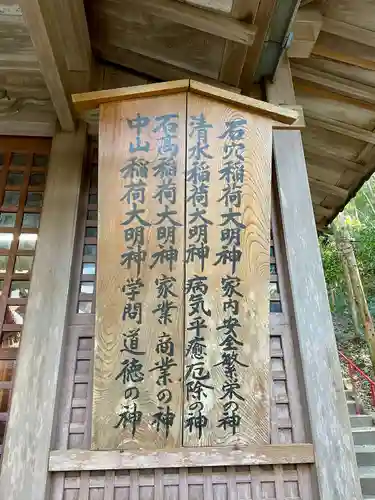 石穴稲荷大明神 家内安全繁栄の神
清水稲荷大明神 病気平癒厄除の神
石高稲荷大明神 家業商業の神
中山稲荷大明神 学問道徳の神